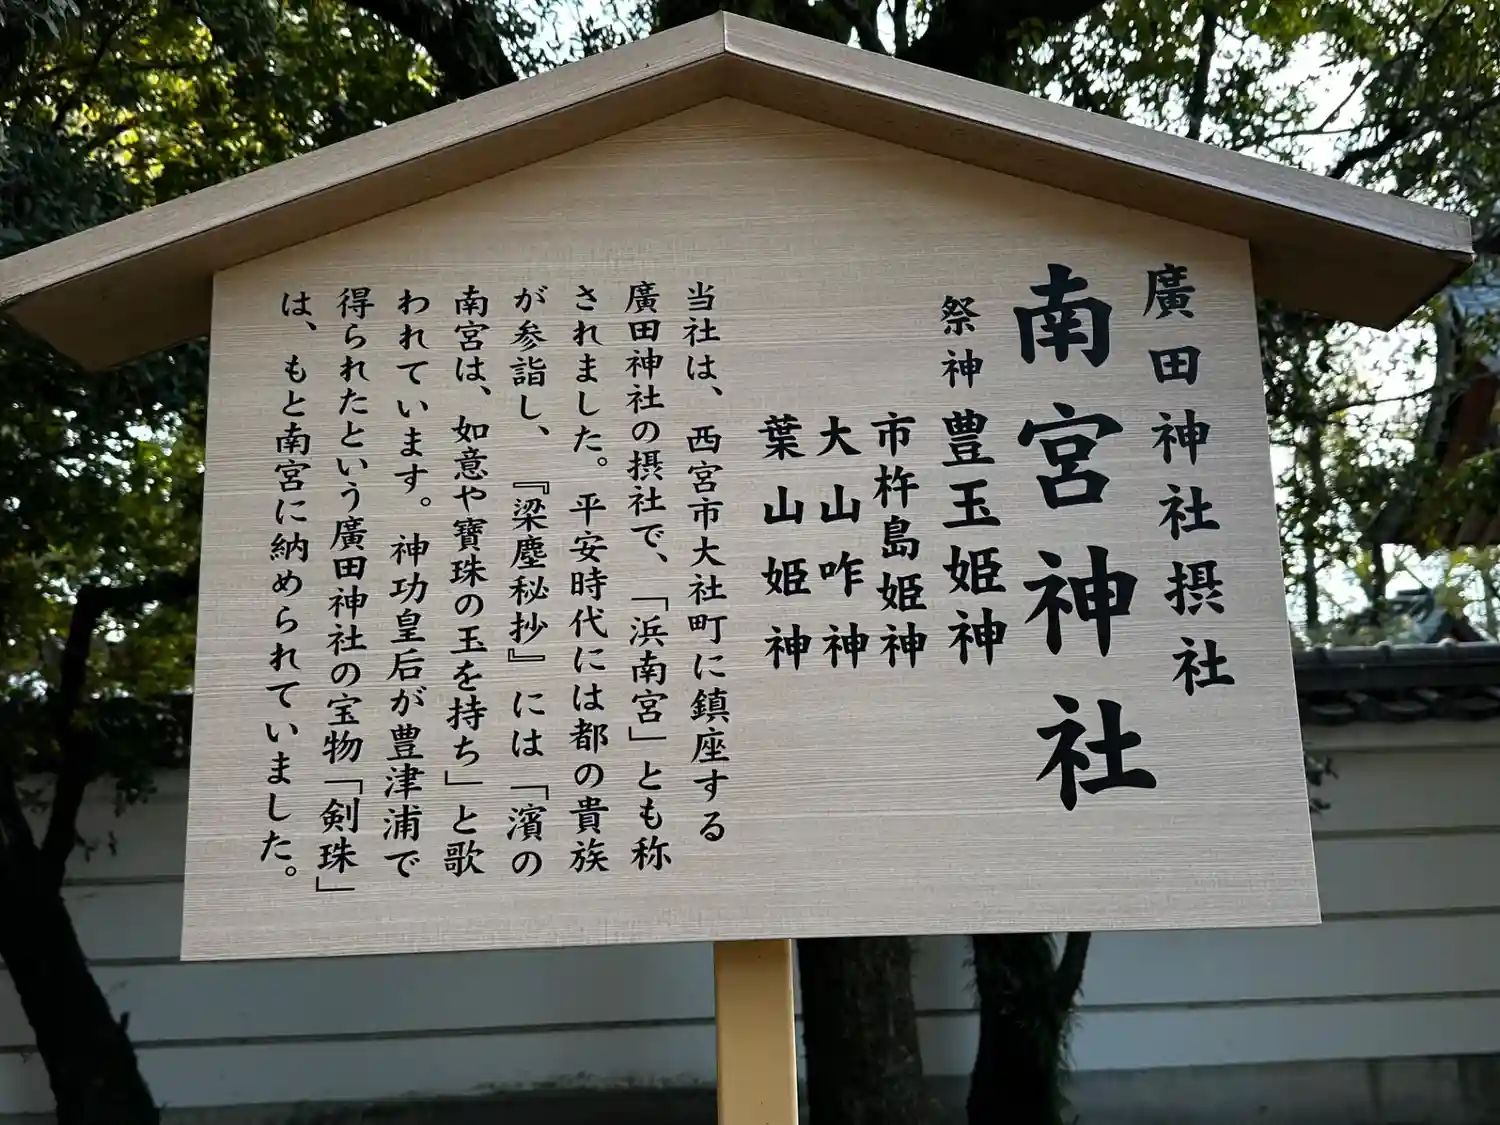 廣田神社摂社
南宮神社
祭神 豊玉姫神
市杵島姫神
大山咋神
葉山姫神
当社は、西宮市大社町に鎮座する
廣田神社の摂社で、「浜南宮」とも称
されました。平安時代には都の貴族
が参詣し、『梁塵秘抄』には「濱の
南宮は、如意や寶珠の玉を持ち」と歌
われています。神功皇后が豊津浦で
得られたという廣田神社の宝物「剣珠」
は、もと南宮に納められていました。